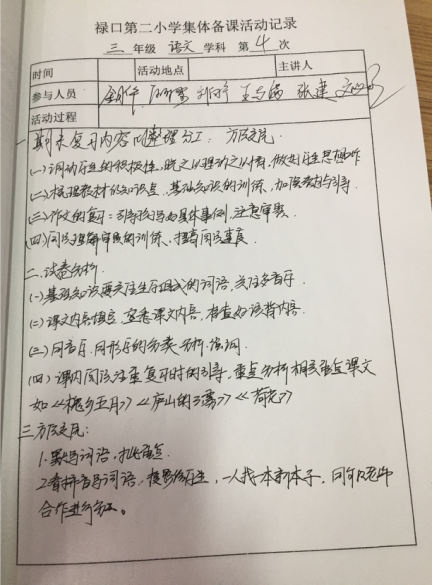 禄口第二小学集体备课活动记录
三 年级 语文 学科 第 4 次
时间 活动地点 主讲人
参与人员 张建
活动过程
一、期末复习内容的整理分工、方法交流.
(一)调动学生的积极性, 晓之以理动之以情, 做好学生思想工作
(二)根据教材的知识点, 基础知识的训练, 加强指导.
(三)作文的复习:引导学生写具体事例, 注意审题.
(四)阅读理解审题的训练, 提高阅读速度.
二、试卷分析.
(一)基础知识要关注生字组成的词语, 关注多音字.
(二)课文内容填空, 熟悉课文内容, 检查好该背内容.
(三)同音字、同形字的分类、分析、填词.
(四)课内阅读注重复习时的引导, 重点分析相关重点课文
如《槐乡五月》《庐山的云雾》《荷花》
三、方法交流:
1.默写词语,
2.看拼音写词语, 一人找一本新本子, 同年级老师
合作进行